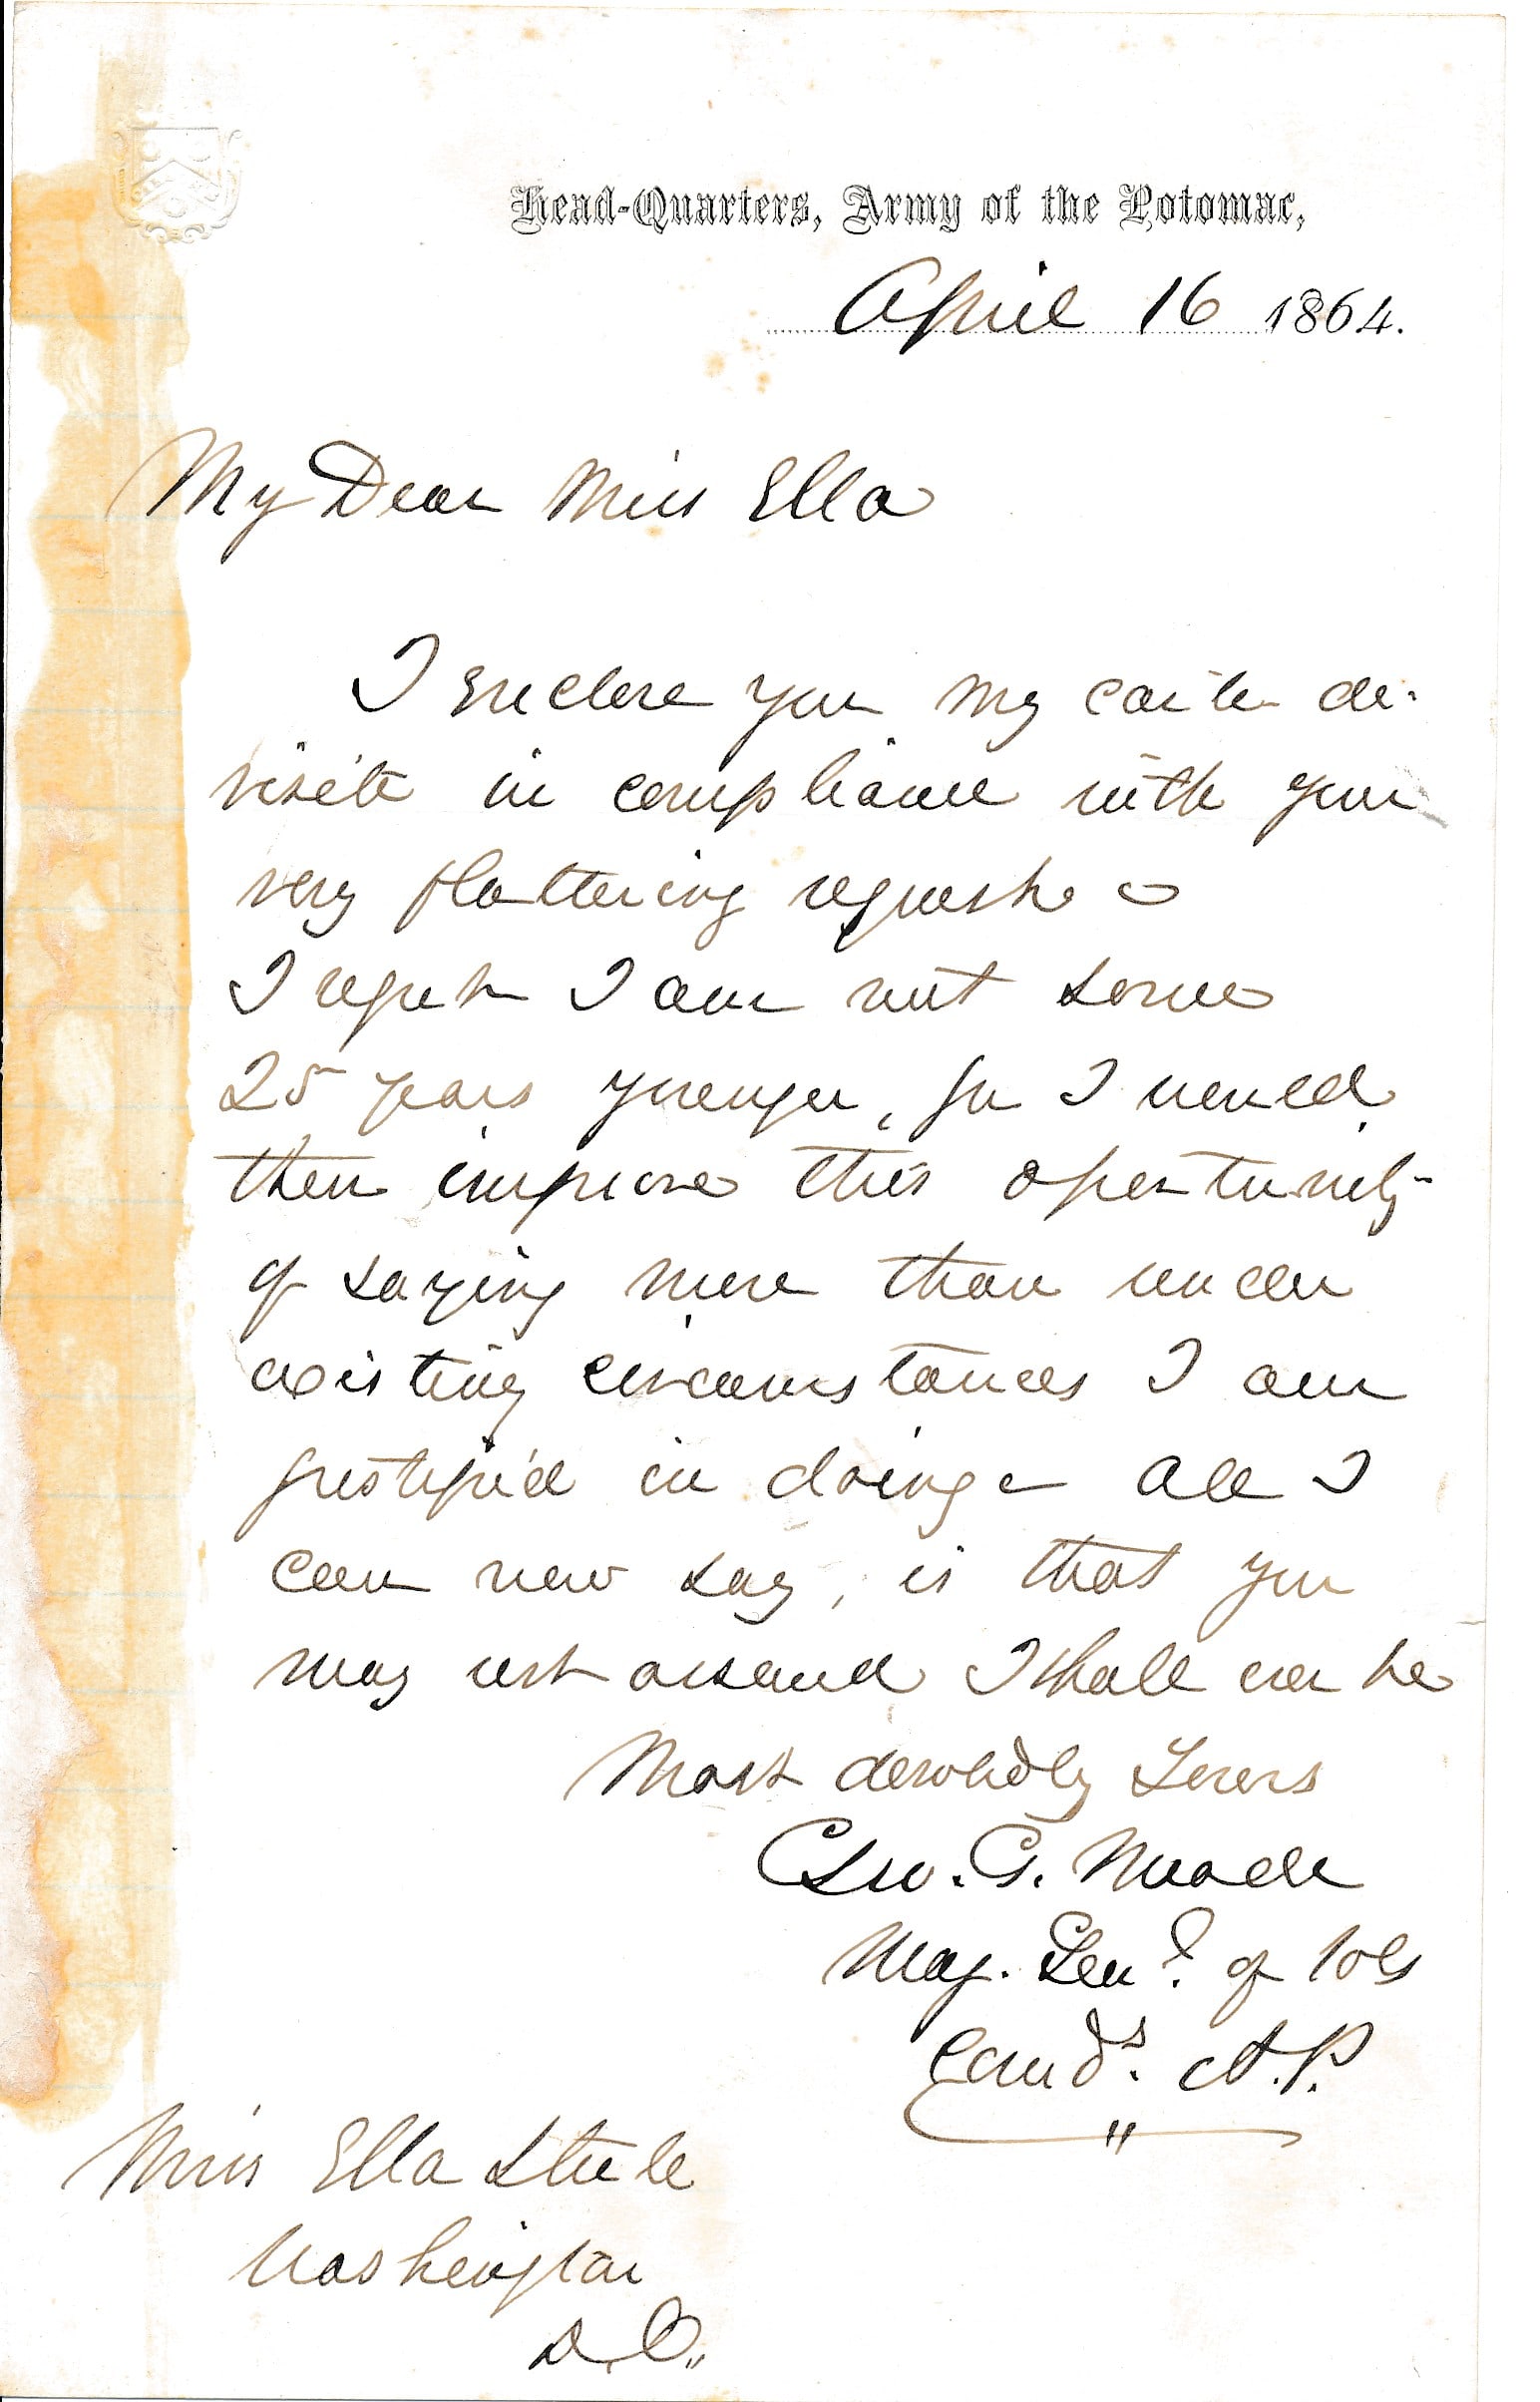 Head-Quarters, Army of the Potomac,
April 16 1864.
My Dear Miss Ella
I enclose you my carte de-
visite in compliance with your
very flattering request –
I regret I am not some
25 years younger, for I would
then improve this opertunity
of saying more than under
existing circumstances I am
justified in doing – All I
can now say, is that you
may rest assured I shall ever be
Most devotedly Yours
Geo. G. Meade
Maj. Genl. of Vols
Comds. A.P.
Miss Ella Steele
Washington
D.C.